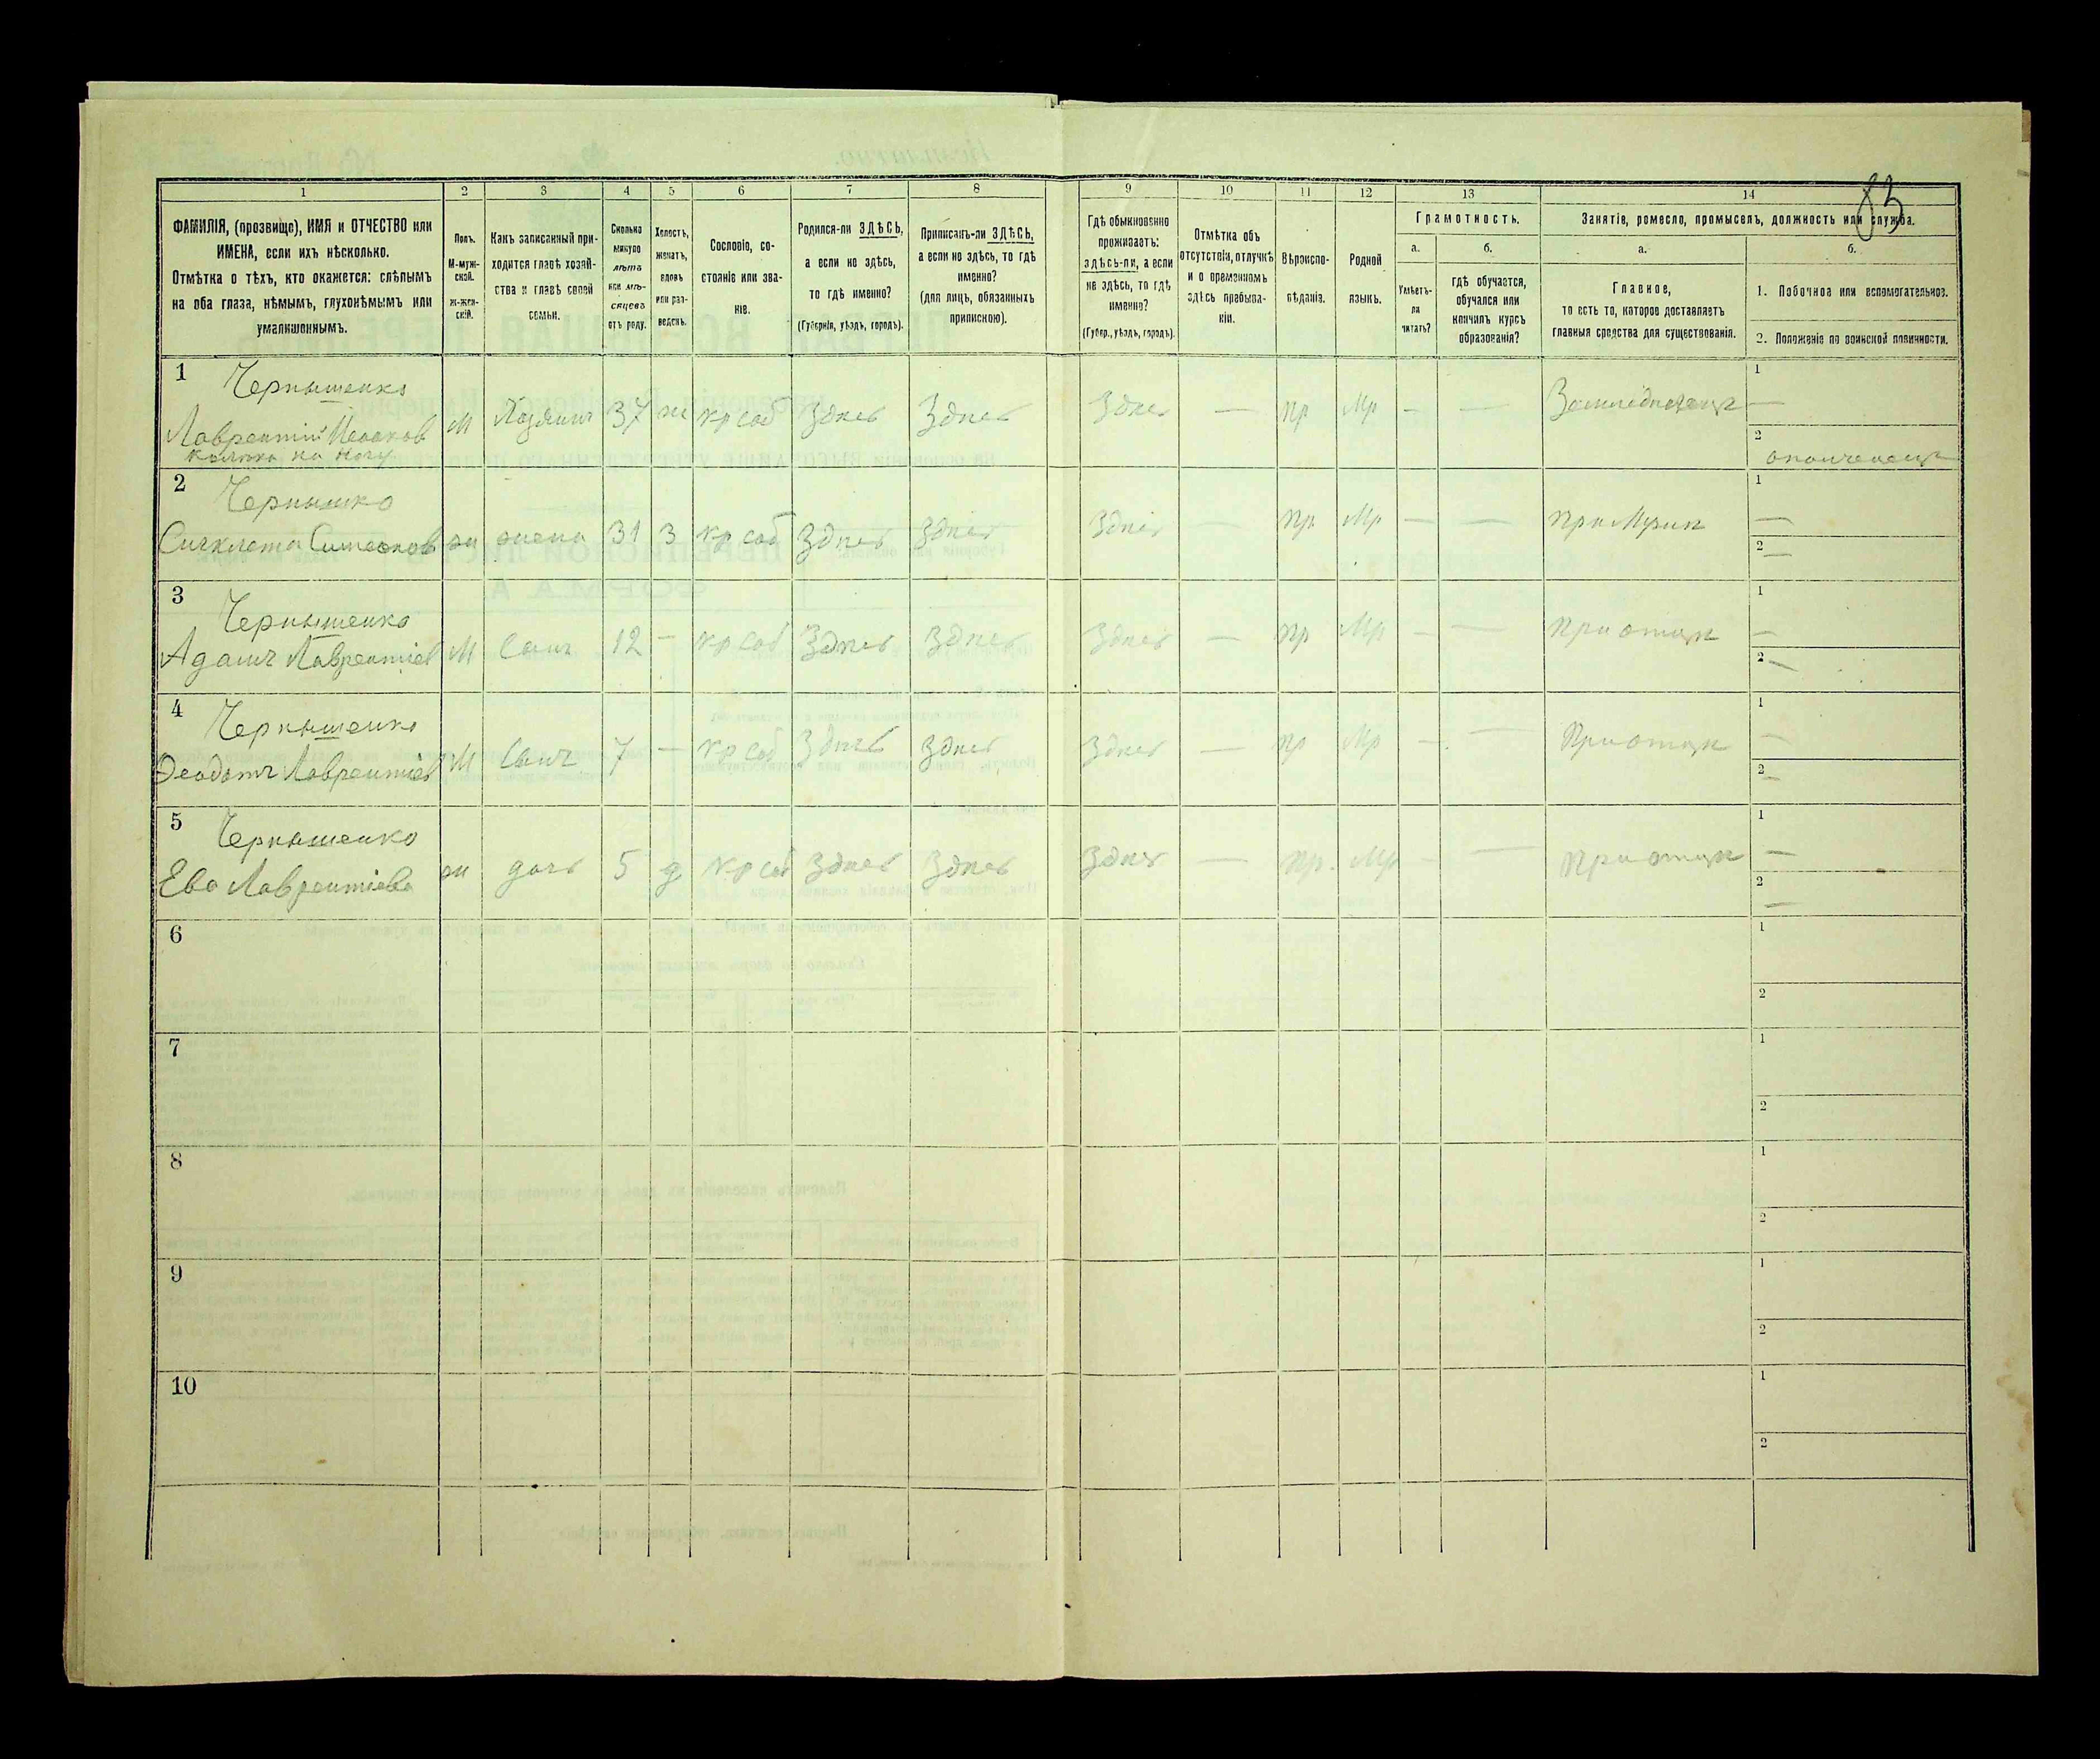 83
1 2 3 4 5 6 7 8 9 10 11 12 13 14
ФАМИЛІЯ, (прозвище), ИМЯ и ОТЧЕСТВО или
ИМЕНА, если ихъ нѣсколько.
Отмѣтка о тѣхъ, кто окажется: слѣпымъ
на оба глаза, нѣмымъ, глухонѣмымъ или
умалишоннымъ.
Полъ.
М-муж-
ской.
Ж-жен-
скій.
Какъ записанный при-
ходится главѣ хозяй-
ства и главѣ своей
семьи.
Сколько
минуло
лѣтъ
или мѣ-
сяцевъ
отъ роду.
Холостъ,
женатъ,
вдовъ
или раз-
веденъ.
Сословіе, со-
стояніе или зва-
ніе.
Родился-ли ЗДѢСЬ,
а если не здѣсь,
то гдѣ именно?
(Губернія, уѣздъ, городъ).
Приписанъ-ли ЗДѢСЬ,
а если не здѣсь, то гдѣ
именно?
(для лицъ, обязанныхъ
припискою).
Гдѣ обыкновенно
проживаетъ:
здѣсь-ли, а если
не здѣсь, то гдѣ
именно?
(Губер., уѣздъ, городъ).
Отмѣтка объ
отсутствіи, отлучкѣ
и о временномъ
здѣсь пребыва-
ніи.
Вѣроиспо-
вѣданіе.
Родной
языкъ.
Грамотность.
а.
Умѣетъ-
ли
читать?
б.
гдѣ обучается,
обучался или
кончилъ курсъ
образованія?
Занятіе, ремесло, промыселъ, должность или служба.
а.
Главное,
то есть то, которое доставляетъ
главныя средства для существованія.
б.
1. Побочное или вспомогательное.
2. Положеніе по воинской повинности.
1 Чернышенко
Лаврентій
на ногу
М Хозяинъ 37 ж кр соб Здѣсь Здѣсь Здѣсь — пр Мр — — Земледѣлецъ
1 —
2 ополченецъ
2 Чернышко
Синклета Симеонов ж жена 31 З кр соб Здѣсь Здѣсь Здѣсь пр Мр — — при Мужѣ
1 —
2 —
3 Чернышенко
Адамъ Лаврентіев М Сынъ 12 — кр соб Здѣсь Здѣсь Здѣсь — пр Мр — — при отцѣ
1 —
2 —
4 Чернышенко
Ѳеодотъ Лаврентіев М Сынъ 7 — кр соб Здѣсь Здѣсь Здѣсь — пр Мр — — при отцѣ
1 —
2 —
5 Чернышенко
Ева Лаврентіева ж дочь 5 д кр соб Здѣсь Здѣсь Здѣсь — пр. Мр — — при отцѣ
1 —
2 —
6
1
2
7
1
2
8
1
2
9
1
2
10
1
2